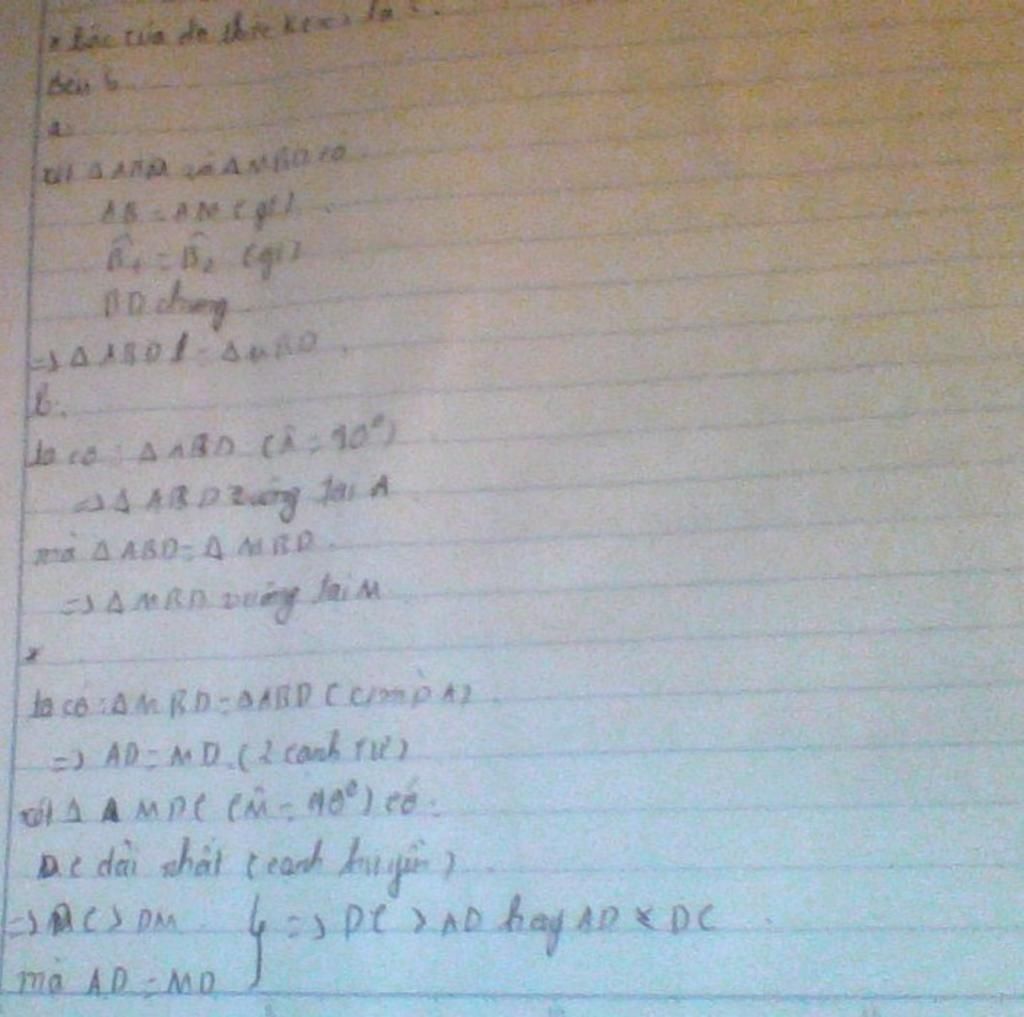 * Bậc của đa thức K(x) là
Bài 6
a.
xét Δ ABD và Δ MBD có
AB = AM (gt)
B̂₁ = B̂₂ (gt)
BD chung
=> Δ ABD = Δ MBD.
b.
ta có: Δ ABD (Â = 90°)
=> Δ ABD vuông tại A
mà Δ ABD = Δ MBD.
=> Δ MBD vuông tại M
*
ta có: Δ MBD = Δ ABD (cmp A)
=> AD = MD (2 cạnh TƯ)
xét Δ MDC (M̂ = 90°) có:
DC dài nhất (cạnh huyền)
=> DC > DM } => DC > AD hay AD < DC
mà AD = MD